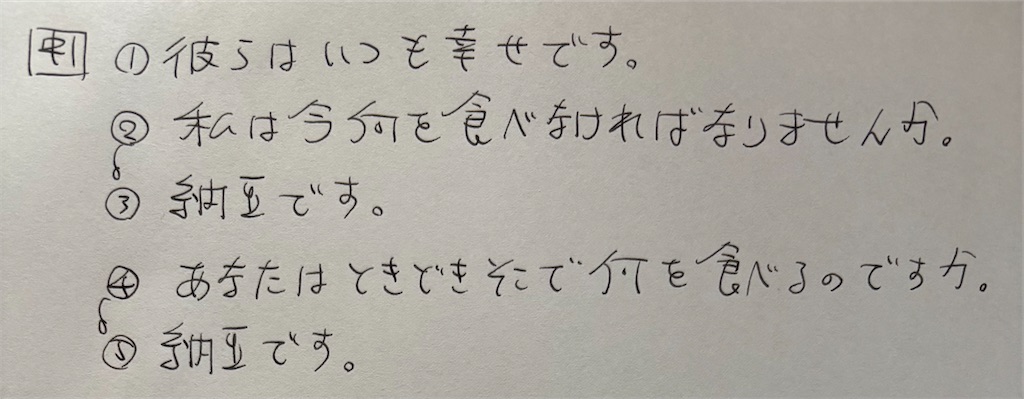 中1 ① 彼らはいつも幸せです。
② 私は今何を食べなければなりませんか。
③ 納豆です。
④ あなたはときどきそこで何を食べるのですか。
⑤ 納豆です。